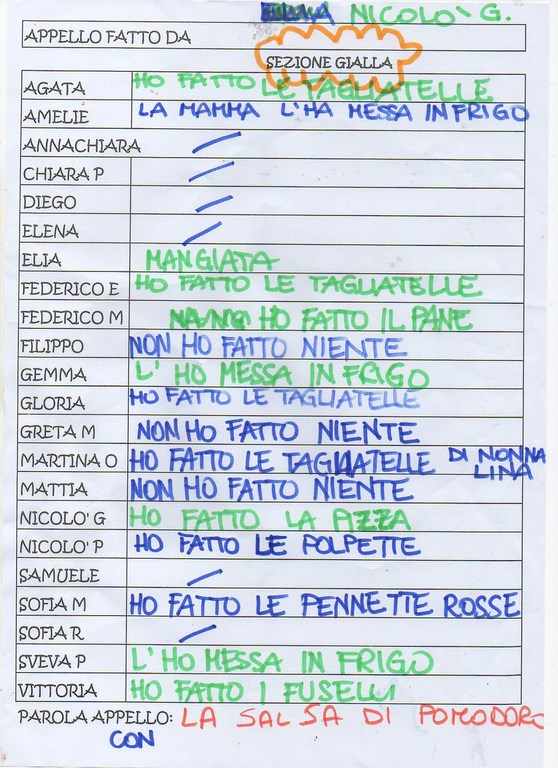 NICOLO' G.
APPELLO FATTO DA
SEZIONE GIALLA
AGATA HO FATTO LE TAGLIATELLE
AMELIE LA MAMMA L'HA MESSA IN FRIGO
ANNACHIARA /
CHIARA P /
DIEGO /
ELENA /
ELIA MANGIATA
FEDERICO E HO FATTO LE TAGLIATELLE
FEDERICO M HO FATTO IL PANE
FILIPPO NON HO FATTO NIENTE
GEMMA L'HO MESSA IN FRIGO
GLORIA HO FATTO LE TAGLIATELLE
GRETA M NON HO FATTO NIENTE
MARTINA O HO FATTO LE TAGLIATELLE DI NONNA LINA
MATTIA NON HO FATTO NIENTE
NICOLO' G HO FATTO LA PIZZA
NICOLO' P HO FATTO LE POLPETTE
SAMUELE /
SOFIA M HO FATTO LE PENNETTE ROSSE
SOFIA R /
SVEVA P L'HO MESSA IN FRIGO
VITTORIA HO FATTO I FUSELLI
PAROLA APPELLO: LA SALSA DI POMODORO
CON